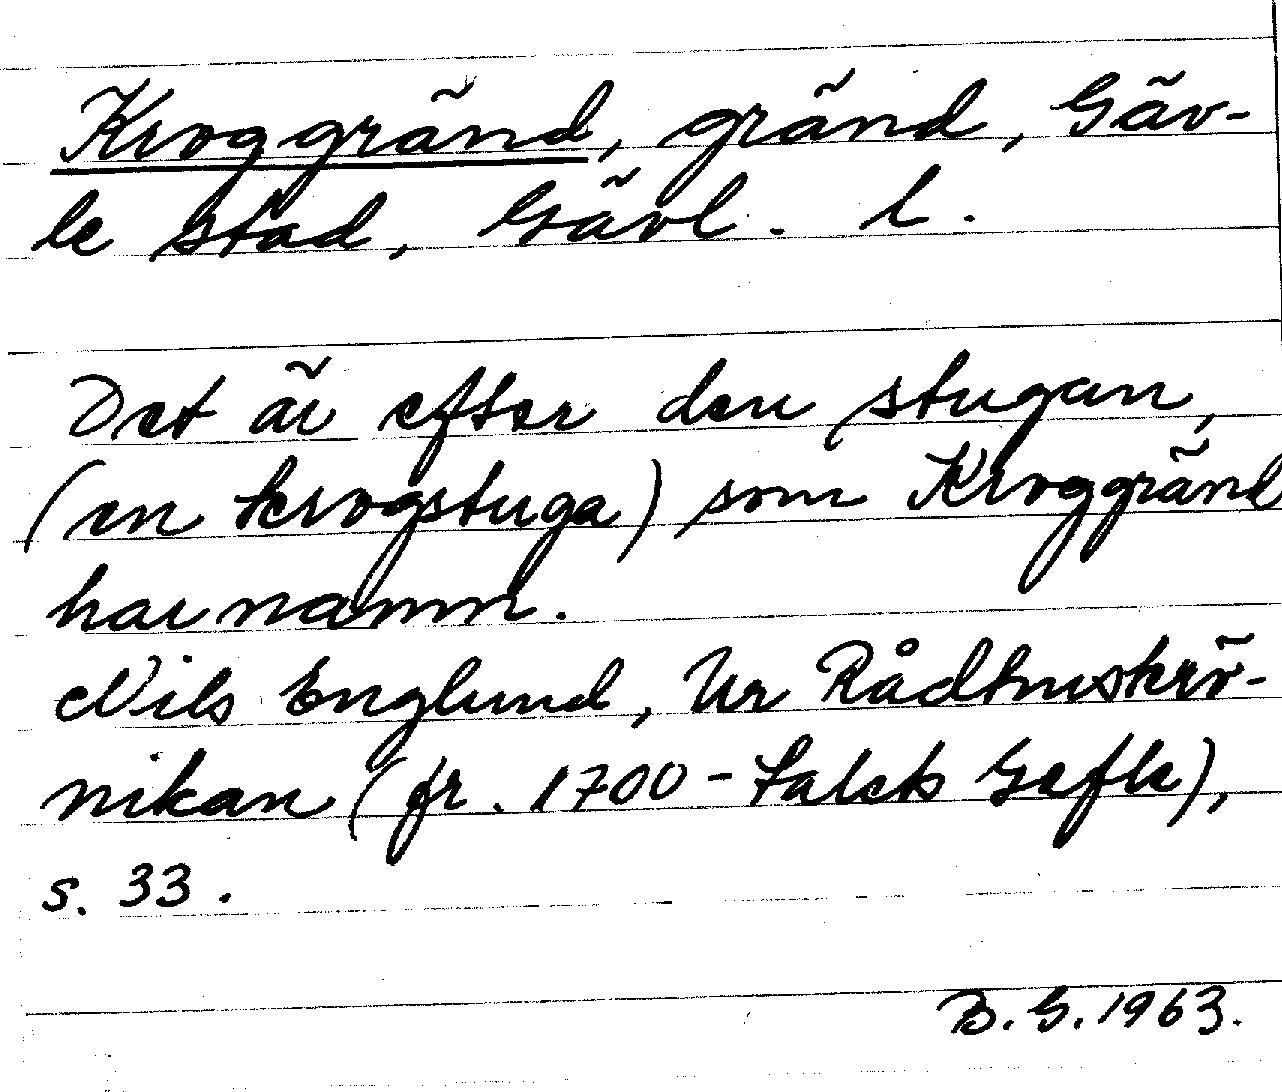 Kroggränd, gränd, Gäv-
le stad, Gävl. l.
Det är efter den stugan,
(en krogstuga) som Kroggränd
har namn.
Nils Englund, Ur Rådhuskrö-
nikan (fr. 1700-talets Gefle),
s. 33.
B. G. 1963.